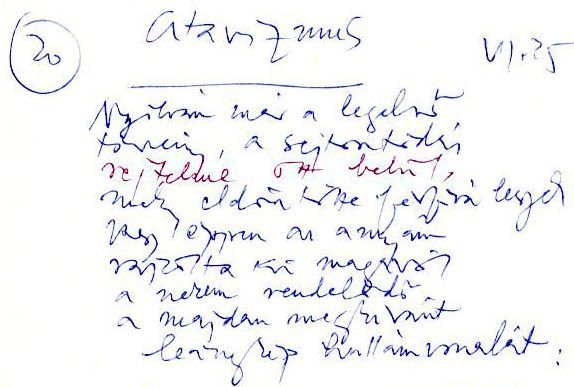 20
Atavizmus
VI. 25
Nyilván már a legelső
törvény, a sejtosztódás
rejtelme ott belül,
mely eldöntötte férfivá legyek
vagy éppen az anyám
rajzolta ki magából
a nekem rendelődő
a majdan megkívánt
leánykép hullámvonalát: